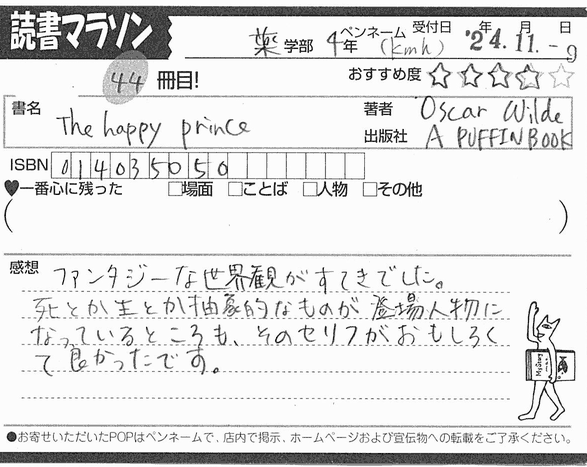 読書マラソン
薬学部 4年 ペンネーム (kmh) 受付日 '24年 11.月 -9日
44冊目! おすすめ度 ☆☆☆☆☆
書名 The happy prince 著者 Oscar Wilde
出版社 A PUFFIN BOOK
ISBN 014035050
♥一番心に残った □場面 □ことば □人物 □その他
( )
感想 ファンタジーな世界観がすてきでした。
死とか生とか抽象的なものが登場人物に
なっているところも、そのセリフがおもしろく
て良かったです。
Mystery
●お寄せいただいたPOPはペンネームで、店内で掲示、ホームページおよび宣伝物への転載をご了承ください。